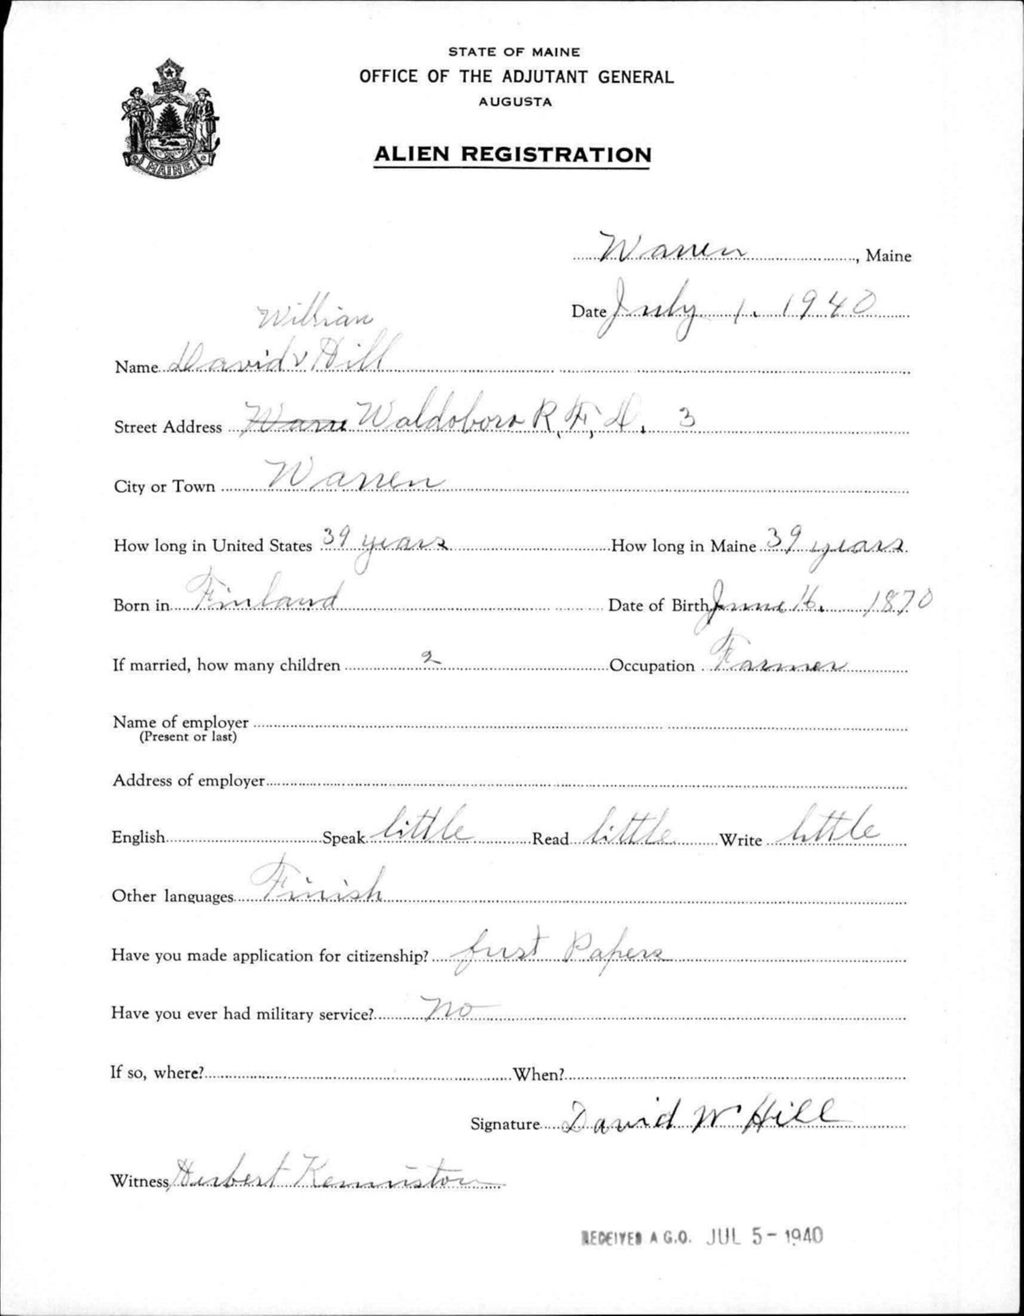 STATE OF MAINE
OFFICE OF THE ADJUTANT GENERAL
AUGUSTA
ALIEN REGISTRATION
MAINE
Warren, Maine
Date July 1. 1940
William
Name David v Hill
Street Address Warre Waldoboro R, F, D. 3
City or Town Warren
How long in United States 39 years How long in Maine 39 years
Born in Finland Date of Birth June 16. 1870
If married, how many children 2 Occupation Farmer
Name of employer
(Present or last)
Address of employer
English Speak little Read little Write little
Other languages Finish
Have you made application for citizenship? first Papers
Have you ever had military service? no
If so, where? When?
Signature David W Hill
Witness Herbert Kenniston
RECEIVED A G.O. JUL 5 - 1940